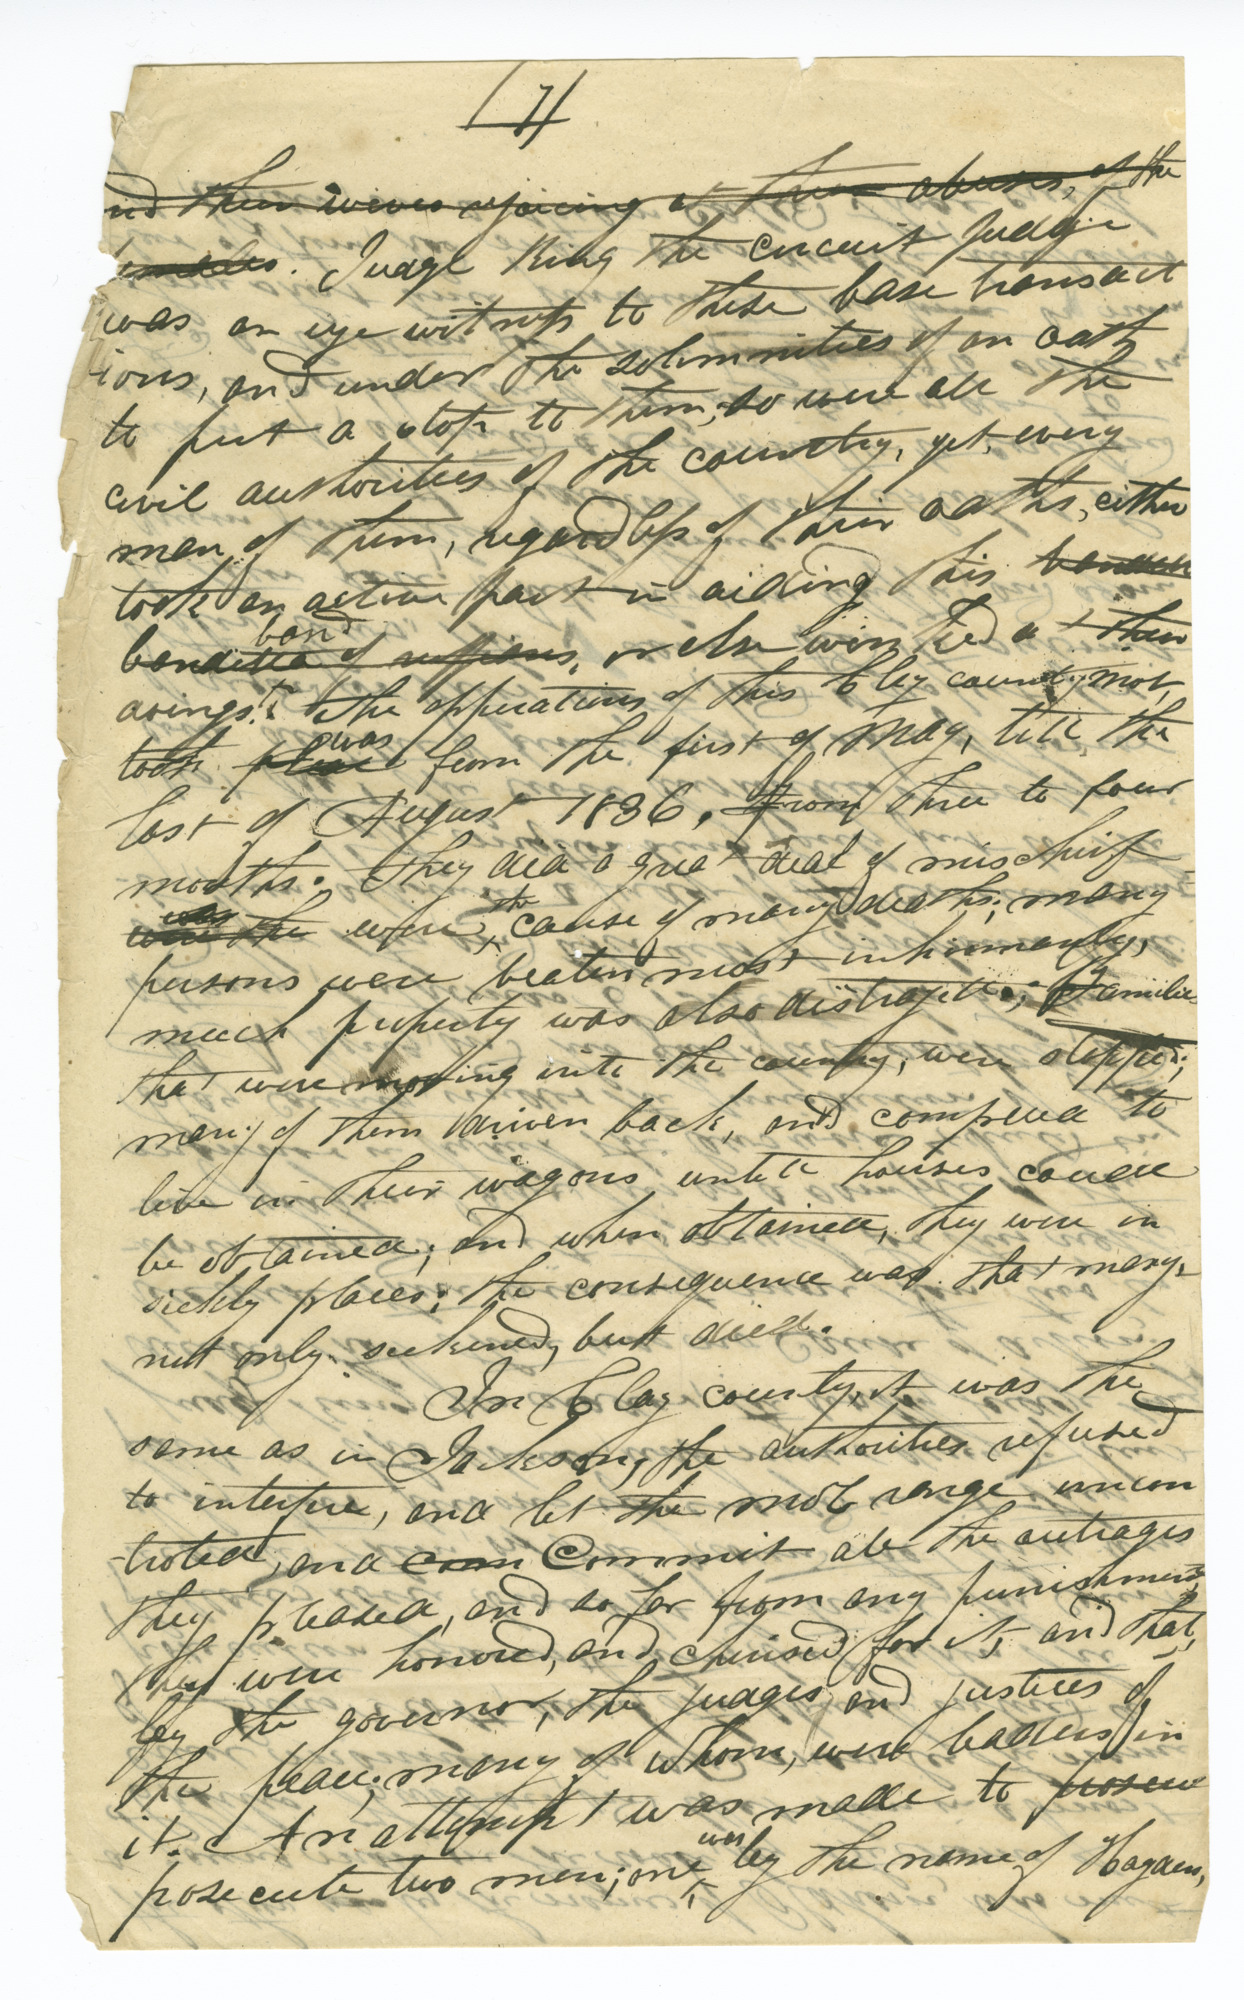 7
nd their wives rejoicing at their abuses, of the
females. Judge King the circuit judge
was an eye witness to these base transact
ions, and under the solemnities of an oath
to put a stop to them, so were all the
civil authorities of the country, yet, every
man of them, regardless of their oaths, either
took an active part in aiding this banditti
banditti band of ruffians, or else winked at their
doings. The opperations of this Clay county mob,
took place was from the first of May, till the
last of August 1836, from three to four
months. They did a great deal of mischief
were was the were, the cause of many deaths; many
persons were beaten most inhumanly,
much property was also distroyed; families
that were moving into the country, were stopped;
many of them driven back, and compelled to
live in their wagons untill houses could
be obtained; and when obtained, they were in
sickly places; the consequence was that many,
not only sickened, but died.
In Clay county, it was the
same as in Jackson, the authorities refused
to interfere, and let the mob range uncon
troled, and com Commit all the outrages
they pleased, and so far from any punishment,
they were honored, and cherised for it, and that,
by the governor, the judges, and justices of
the peace; many of whom, were leaders in
it. An attempt was made to prosecu
prosecute two men; one was by the name of Hagden,